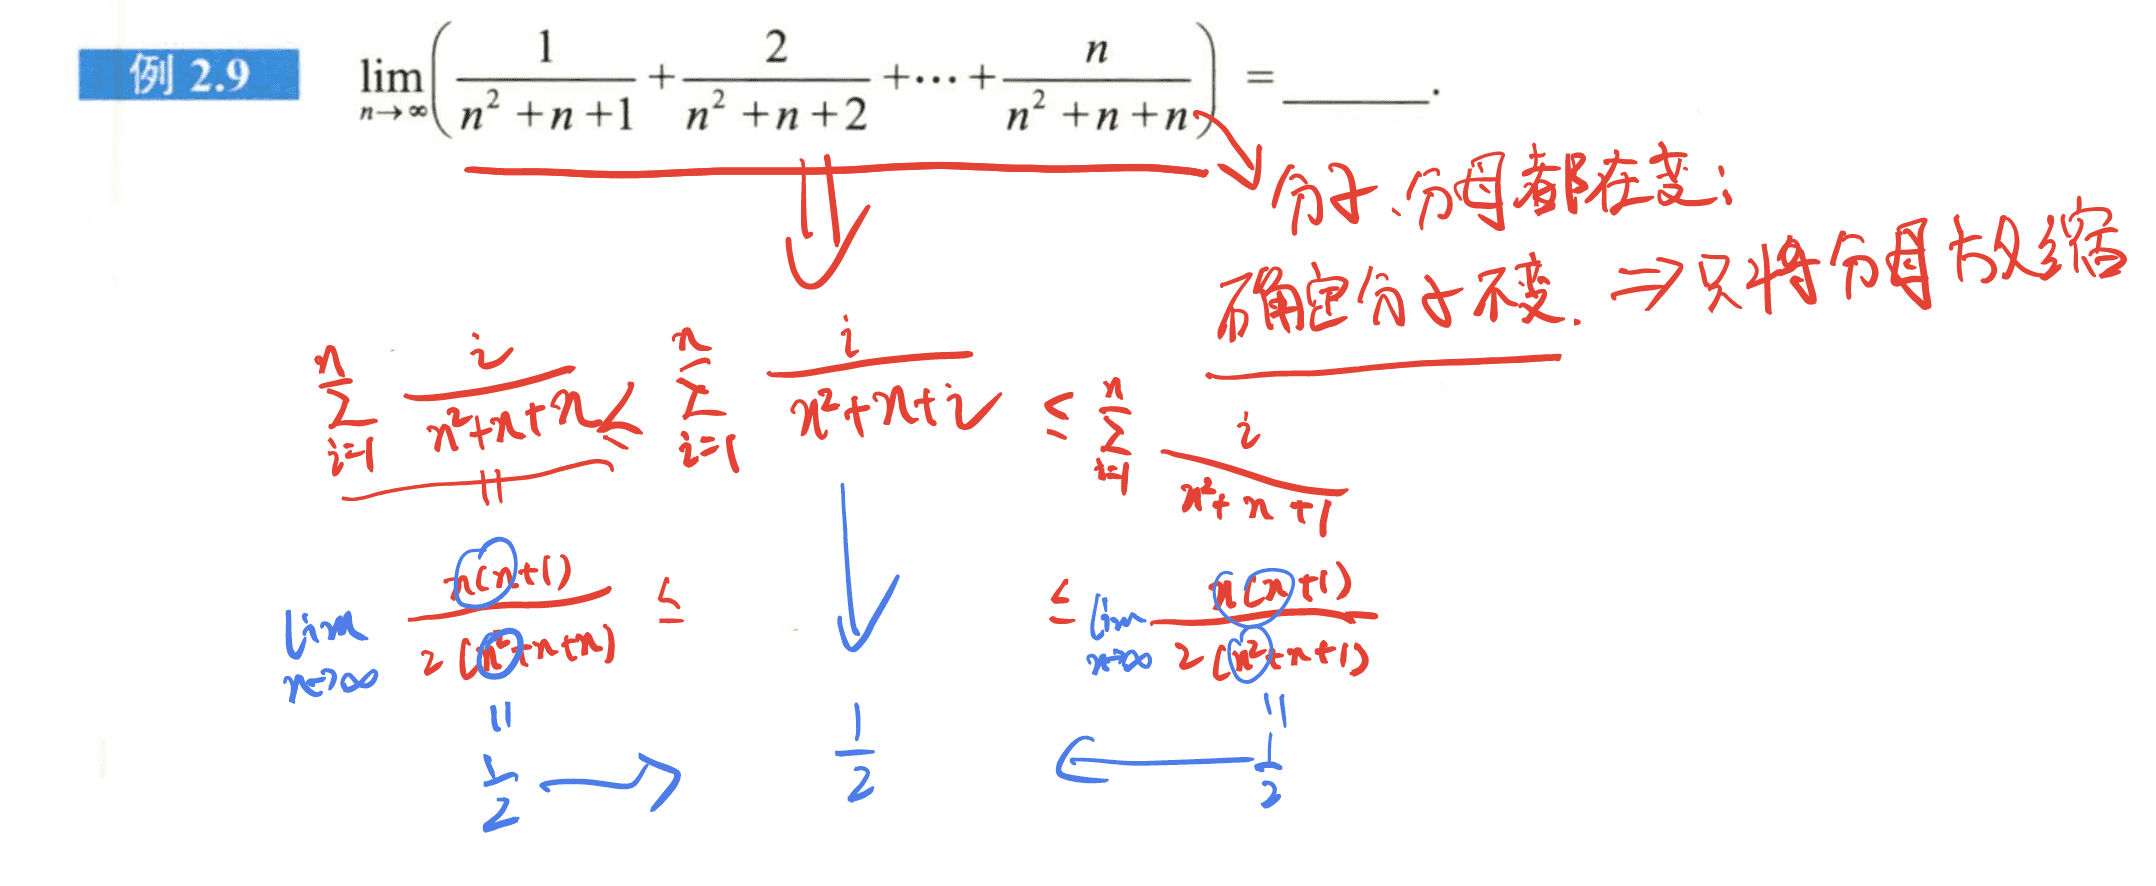 例 2.9 lim n→∞ ( 1/(n²+n+1) + 2/(n²+n+2) +⋯+ n/(n²+n+n) ) = ______.
分子、分母都在变;
确定分子不变. ⇒只将分母放缩
∑ i=1 n i/(n²+n+n) ≤ ∑ i=1 n i/(n²+n+i) ≤ ∑ i=1 n i/(n²+n+1)
=
lim n→∞ n(n+1)/2(n²+n+n) ≤ ≤ lim n→∞ n(n+1)/2(n²+n+1)
= =
1/2 → 1/2 ← 1/2